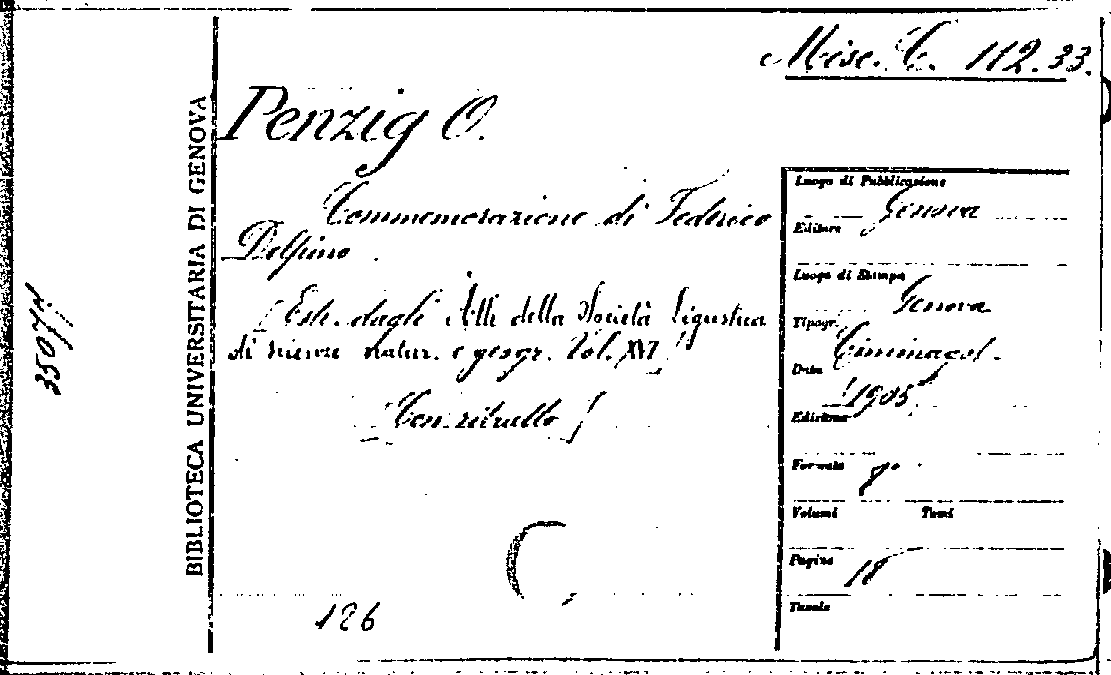 Misc. C. 112.33.
Penzig O.
Commemorazione di Federico
Delpino.
[Estr. dagli Atti della Società Ligustica
di scienze natur. e geogr. Vol. XVI]
[Con ritratto]
126
BIBLIOTECA UNIVERSITARIA DI GENOVA
Luogo di Pubblicazione
Genova
Editore
Luogo di Stampa
Genova
Tipogr.
Ciminago.
Data
1905
Edizione
Formato 8°
Volumi Tomi
Pagine 18
Tavole